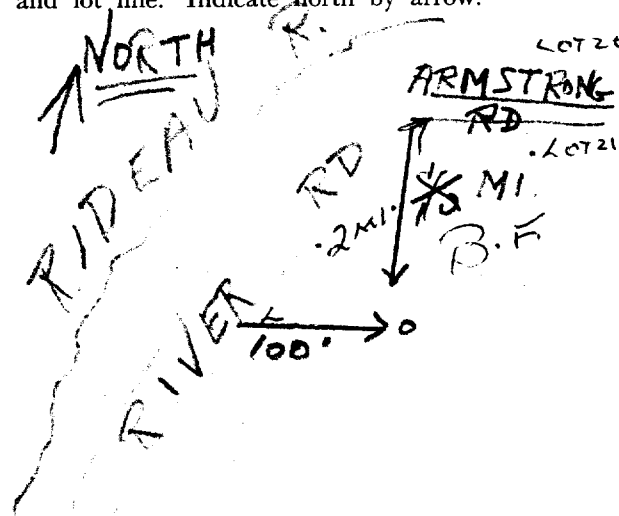 and lot line. Indicate north by arrow.
NORTH
RIDEAU R.
ARMSTRONG
RD
.LOT 21
RIVER RD
.2 MI.
MI.
B.F
100'